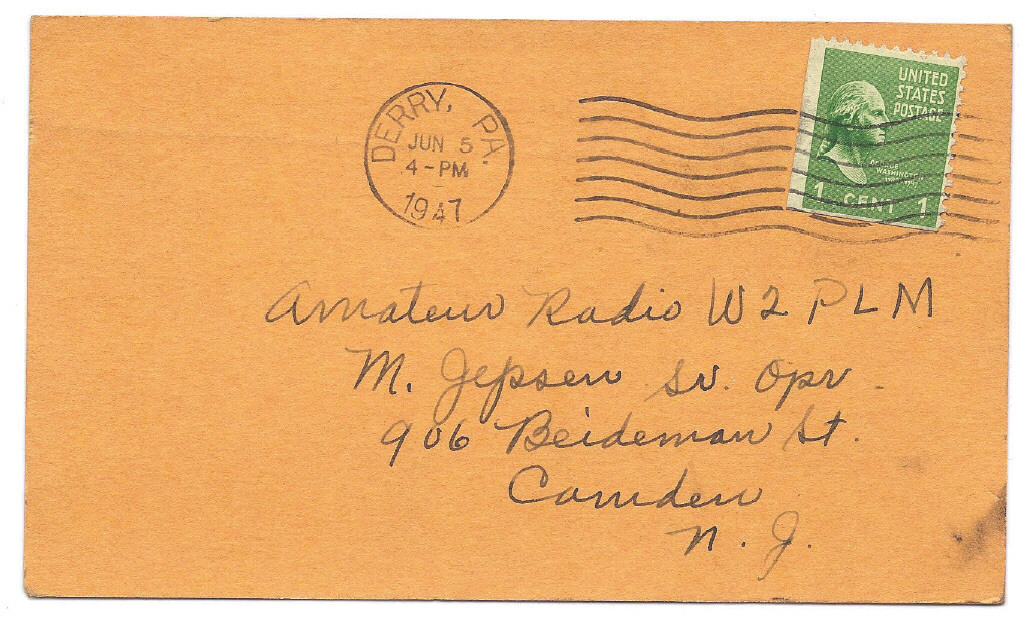 DERRY, PA.
JUN 5
4-PM
1947
UNITED
STATES
POSTAGE
GEORGE
WASHINGTON
1 CENT 1
Amateur Radio W2PLM
M. Jepsen Sr. Opr.
906 Beideman St.
Camden
N. J.